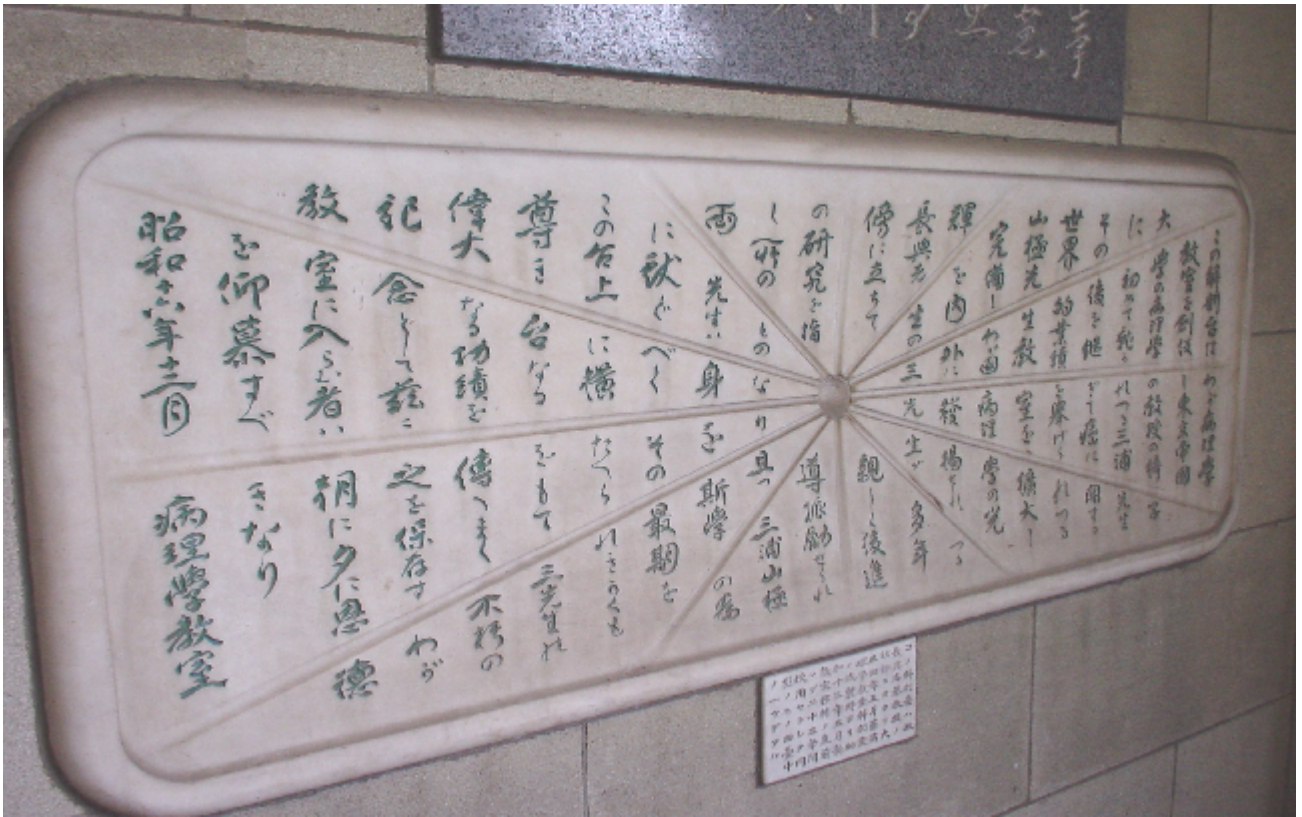 この解剖台はわが病理學
教室を創設し東京帝國
大學の病理學の教授の椅子
に初めて就かれつる三浦先生
その後を継ぎて癌に関する
世界的業績を挙げられつる
山極先生教室を擴大し
完備しわが國病理學の光
輝を内外に發揚されつる
長與先生の三先生が多年
傍に立ちて親しく後進
の研究を指導激励せられ
し所のものなり且つ三浦山極
両先生は身を斯學の為
に献ぐべくその最期を
この台上に横たへられきかくも
尊き台なるをもて三先生の
偉大なる功績を傳へまく不朽の
記念として茲に之を保存すわが
教室に入らむ者は朝に夕に恩徳
を仰慕すべきなり
昭和十六年十二月 病理學教室